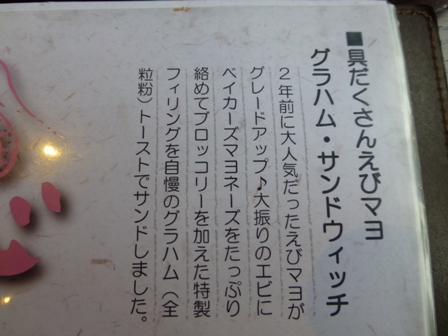 ■具だくさんえびマヨ
グラハム・サンドウィッチ
2年前に大人気だったえびマヨが
グレードアップ♪大振りのエビに
ベイカーズマヨネーズをたっぷり
絡めてブロッコリーを加えた特製
フィリングを自慢のグラハム(全
粒粉)トーストでサンドしました。